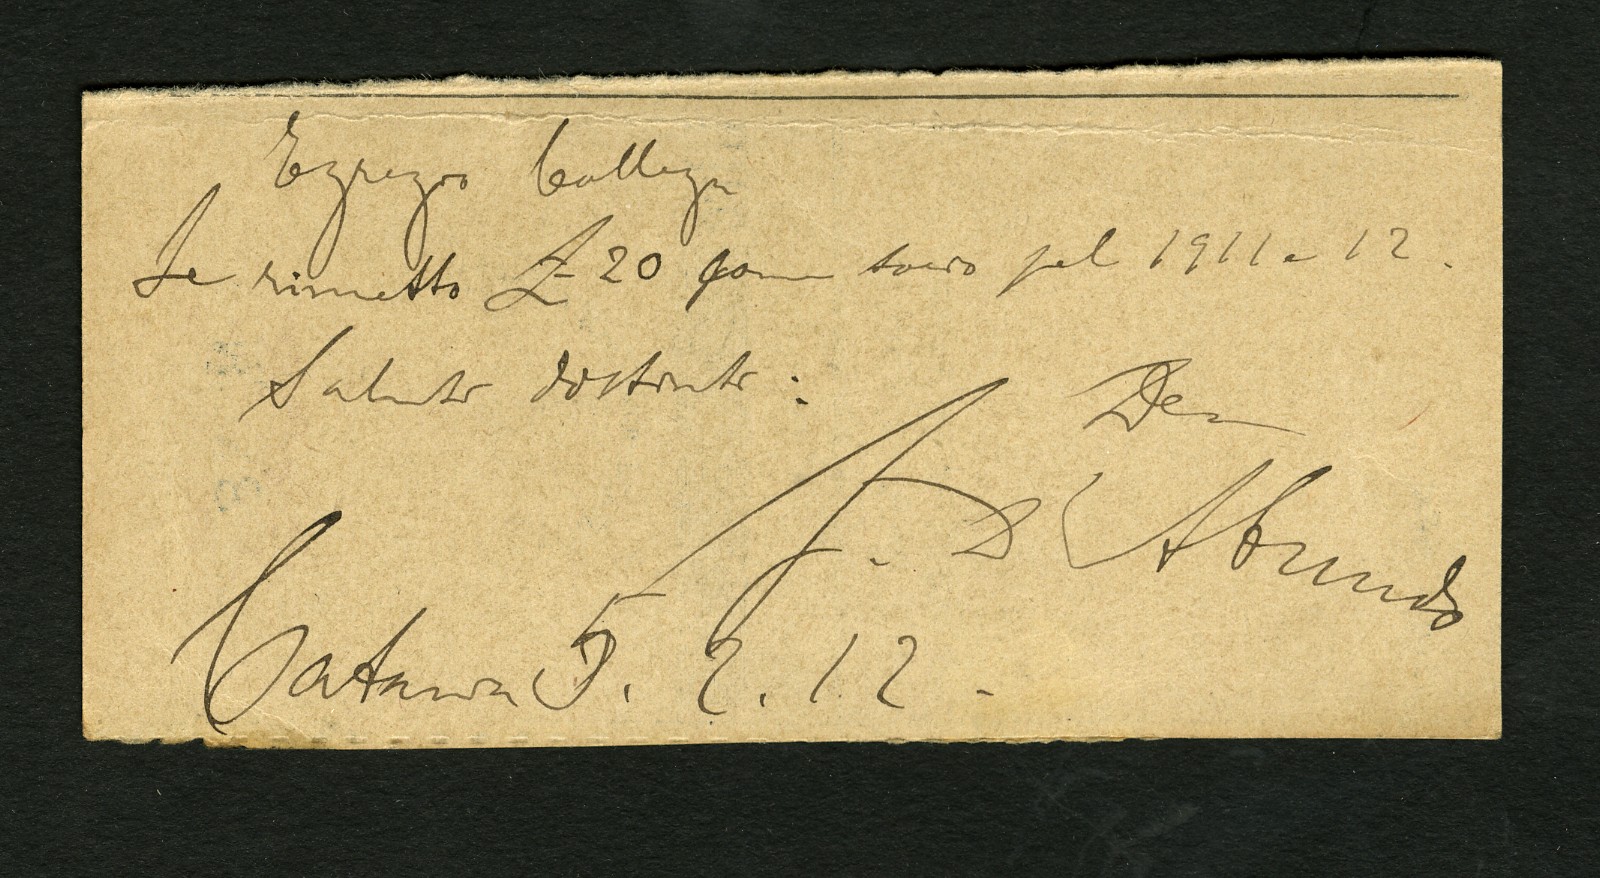 Egregio Collega
Le rimetto £ 20 come socio pel 1911 e 12.
Saluti distinti.
Dev
G. D'Abundo
Catania 5. 2. 12.